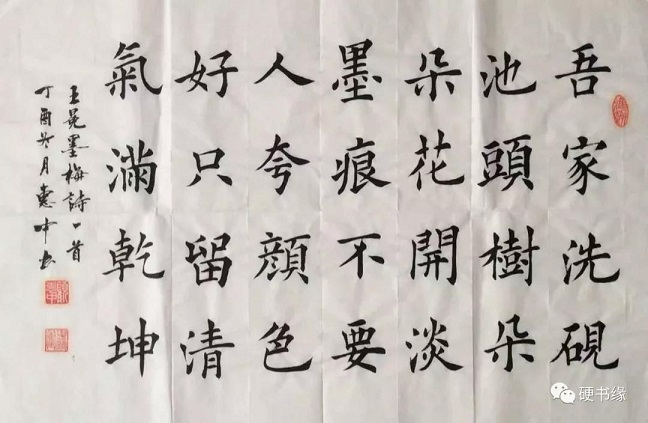 吾家洗硯
池頭樹朵
朵花開淡
墨痕不要
人夸顏色
好只留清
氣滿乾坤
王冕墨梅詩一首
丁酉冬月惠中书
硬书缘